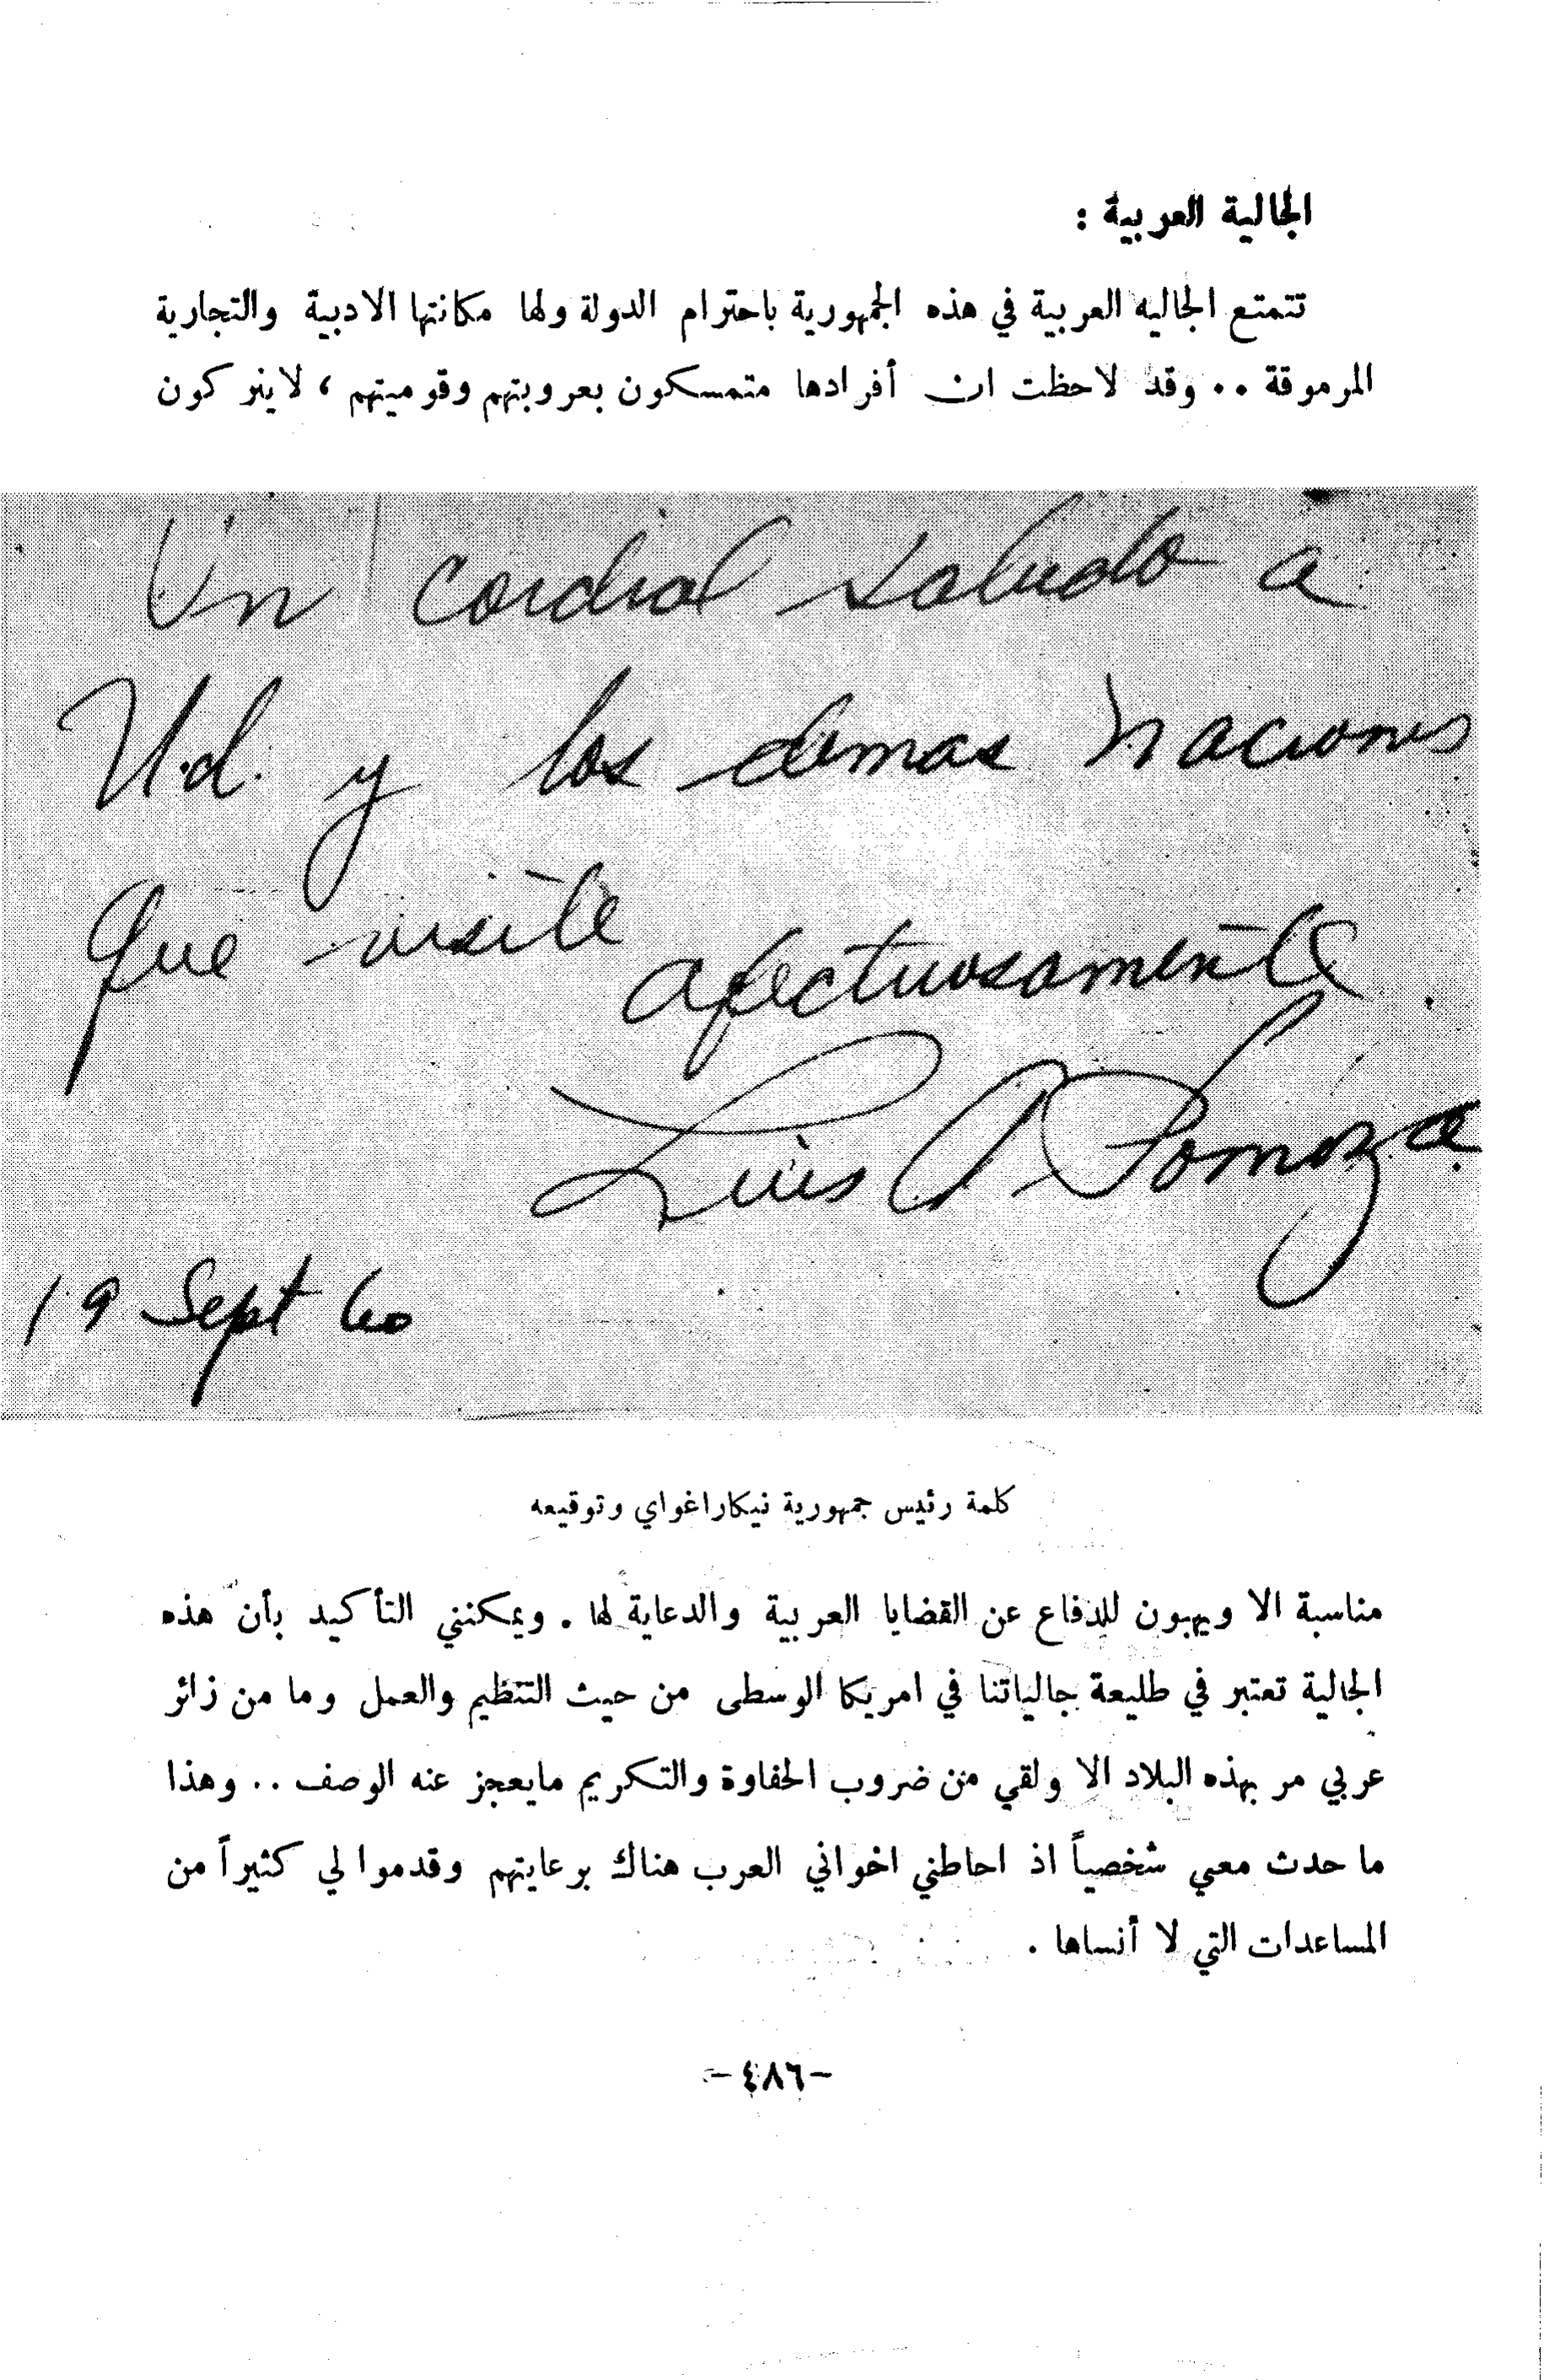 الجالية العربية :
تتمتع الجاليه العربية في هذه الجمهورية باحترام الدولة ولها مكانتها الادبية والتجارية
المرموقة .. وقد لاحظت ان أفرادها متمسكون بعروبتهم وقوميتهم ، لايتركون
Un cordial saludo a
Ud. y los demas naciones
que visite
afectuosamente
Luis A Somoza
19 Sept 60
كلمة رئيس جمهورية نيكاراغواي وتوقيعه
مناسبة الا ويهبون للدفاع عن القضايا العربية والدعاية لها . ويمكنني التأكيد بأن هذه
الجالية تعتبر في طليعة جالياتنا في امريكا الوسطى من حيث التنظيم والعمل وما من زائر
عربي مر بهذه البلاد الا ولقي من ضروب الحفاوة والتكريم مايعجز عنه الوصف .. وهذا
ما حدث معي شخصياً اذ احاطني اخواني العرب هناك برعايتهم وقدموا لي كثيراً من
المساعدات التي لا أنساها .
-٤٨٦-